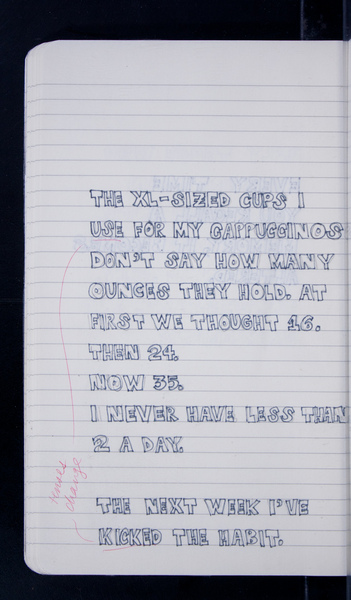 THE XL-SIZED CUPS I
USE FOR MY CAPPUCCINOS
DON'T SAY HOW MANY
OUNCES THEY HOLD. AT
FIRST WE THOUGHT 16.
THEN 24.
NOW 35.
I NEVER HAVE LESS THAN
2 A DAY.
tenses
change
THE NEXT WEEK I'VE
KICKED THE HABIT.